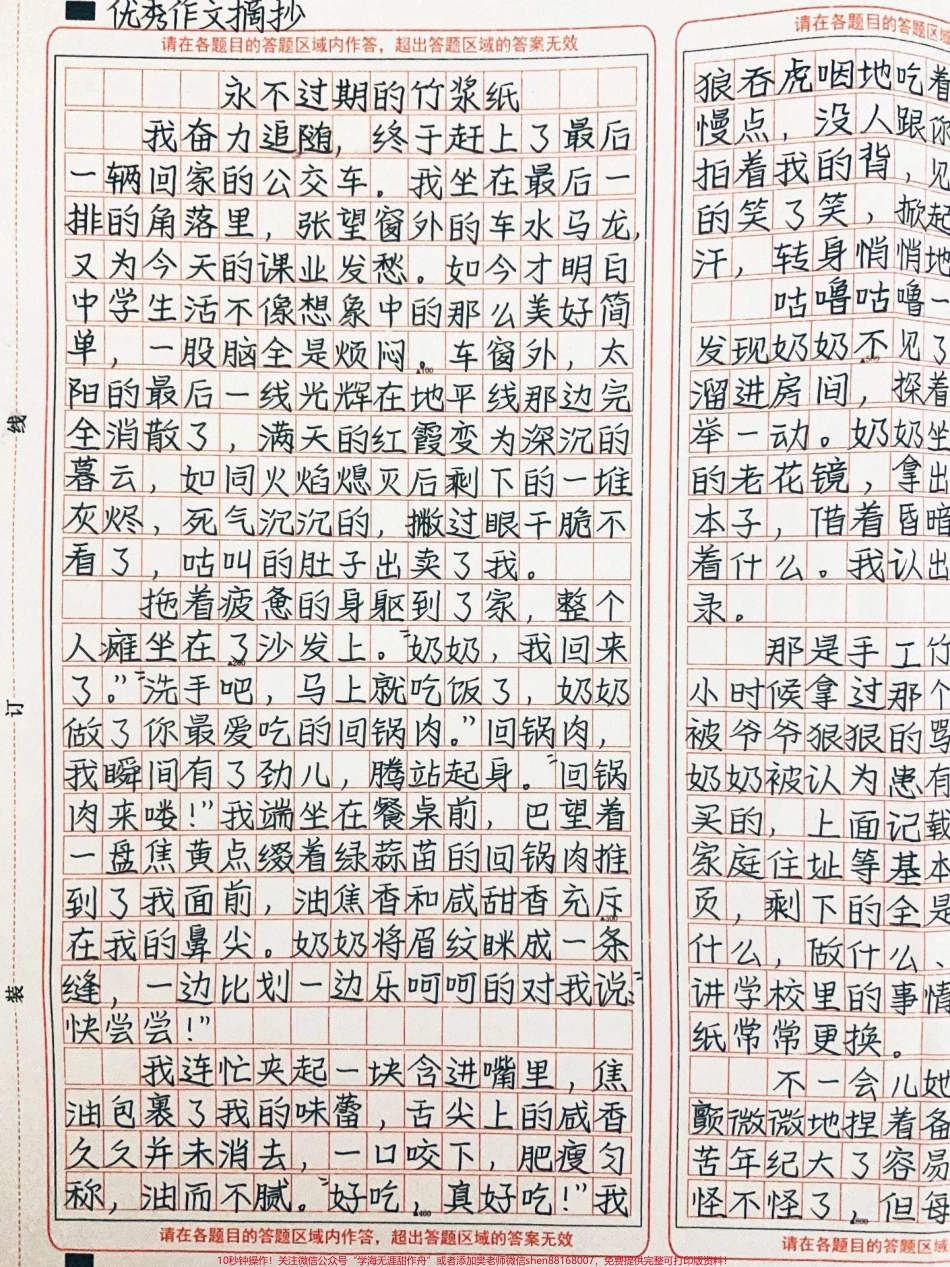 优秀作文摘抄
请在各题目的答题区域内作答，超出答题区域的答案无效
永不过期的竹浆纸
我奋力追随，终于赶上了最后
一辆回家的公交车。我坐在最后一
排的角落里，张望窗外的车水马龙，
又为今天的课业发愁。如今才明白
中学生活不像想象中的那么美好简
单，一股脑全是烦闷。车窗外，太
▲100
阳的最后一线光辉在地平线那边完
全消散了，满天的红霞变为深沉的
暮云，如同火焰熄灭后剩下的一堆
灰烬，死气沉沉的，撇过眼干脆不
看了，咕叫的肚子出卖了我。
拖着疲惫的身躯到了家，整个
人瘫坐在了沙发上。“奶奶，我回来
▲200
了。”“洗手吧，马上就吃饭了，奶奶
做了你最爱吃的回锅肉。”回锅肉，
我瞬间有了劲儿，腾站起身。“回锅
肉来喽！”我端坐在餐桌前，巴望着
一盘焦黄点缀着绿蒜苗的回锅肉推
到了我面前，油焦香和咸甜香充斥
▲300
在我的鼻尖。奶奶将眉纹眯成一条
缝，一边比划一边乐呵呵的对我说：“
快尝尝！”
我连忙夹起一块含进嘴里，焦
油包裹了我的味蕾，舌尖上的咸香
久久并未消去，一口咬下，肥瘦匀
称，油而不腻。“好吃，真好吃！”我
▲400
请在各题目的答题区域内作答，超出答题区域的答案无效
线
订
装
请在各题目的答题区域
狼吞虎咽地吃着
慢点，没人跟你
拍着我的背，见
的笑了笑，掀起
汗，转身悄悄地
咕噜咕噜一
发现奶奶不见了
溜进房间，探着
举一动。奶奶坐
的老花镜，拿出
本子，借着昏暗
着什么。我认出
录。
那是手工竹
小时候拿过那个
被爷爷狠狠的骂
奶奶被认为患有
买的，上面记载
家庭住址等基本
页，剩下的全是
什么，做什么、
讲学校里的事情
纸常常更换。
不一会儿她
颤微微地捏着备
苦年纪大了容易
怪不怪了，但每
请在各题目的答题区域
10秒钟操作！关注微信公众号“学海无涯甜作舟”或者添加樊老师微信shen88168007，免费提供完整可打印版资料！